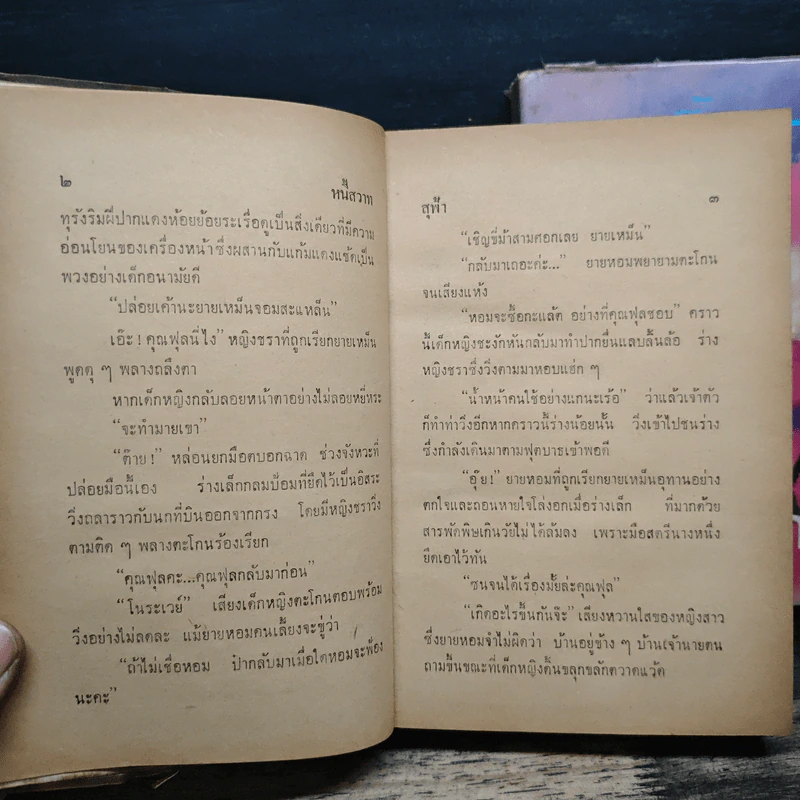 ๒
หนี้สวาท
ทุรังริมฝีปากแดงห้อยย้อยระเรื่อดูเป็นสิ่งเดียวที่มีความ
อ่อนโยนของเครื่องหน้าซึ่งผสานกับแก้มแดงแช้ดเป็น
พวงอย่างเด็กอนามัยดี
“ปล่อยเค้านะยายเหม็นจอมสะแหล็น”
เอ๊ะ! คุณฟุลนี่ไง” หญิงชราที่ถูกเรียกยายเหม็น
พูดดุ ๆ พลางถลึงตา
หากเด็กหญิงกลับลอยหน้าตาอย่างไม่ลอยหยี่หระ
“จะทำมายเขา”
“ต๊าย!” หล่อนยกมือตบอกฉาด ช่วงจังหวะที่
ปล่อยมือนี้เอง ร่างเล็กกลมป้อมที่ยึดไว้เป็นอิสระ
วิ่งถลาราวกับนกที่บินออกจากกรง โดยมีหญิงชราวิ่ง
ตามติด ๆ พลางตะโกนร้องเรียก
“คุณฟุลคะ...คุณฟุลกลับมาก่อน”
“โนระเวย์” เสียงเด็กหญิงตะโกนตอบพร้อม
วิ่งอย่างไม่ลดละ แม้ย้ายหอมคนเลี้ยงจะขู่ว่า
“ถ้าไม่เชื่อหอม ป๋ากลับมาเมื่อใดหอมจะฟ้อง
นะคะ”
สุฟ้า
๓
“เชิญขี่ม้าสามศอกเลย ยายเหม็น”
“กลับมาเถอะค่ะ...” ยายหอมพยายามตะโกน
จนเสียงแห้ง
“หอมจะซื้อกะแล้ค อย่างที่คุณฟุลชอบ” คราว
นี้เด็กหญิงชะงักหันกลับมาทำปากยื่นแลบลิ้นล้อ ร่าง
หญิงชราซึ่งวิ่งตามมาหอบแฮ่ก ๆ
“น้ำหน้าคนใช้อย่างแกนะเร้อ” ว่าแล้วเจ้าตัว
ก็ทำท่าวิ่งอีกหากคราวนี้ร่างน้อยนั้น วิ่งเข้าไปชนร่าง
ซึ่งกำลังเดินมาตามฟุตบาธเข้าพอดี
“อุ๊ย!” ยายหอมที่ถูกเรียกยายเหม็นอุทานอย่าง
ตกใจและถอนหายใจโล่งอกเมื่อร่างเล็ก ที่มากด้วย
สารพัดพิษเกินวัยไม่ได้ล้มลง เพราะมือสตรีนางหนึ่ง
ยึดเอาไว้ทัน
“ซนจนได้เรื่องมั้ยล่ะคุณฟุล”
“เกิดอะไรขึ้นกันจ๊ะ” เสียงหวานใสของหญิงสาว
ซึ่งยายหอมจำไม่ผิดว่า บ้านอยู่ข้าง ๆ บ้านเจ้านายตน
ถามขึ้นขณะที่เด็กหญิงดิ้นขลุกขลักตวาดแว้ด